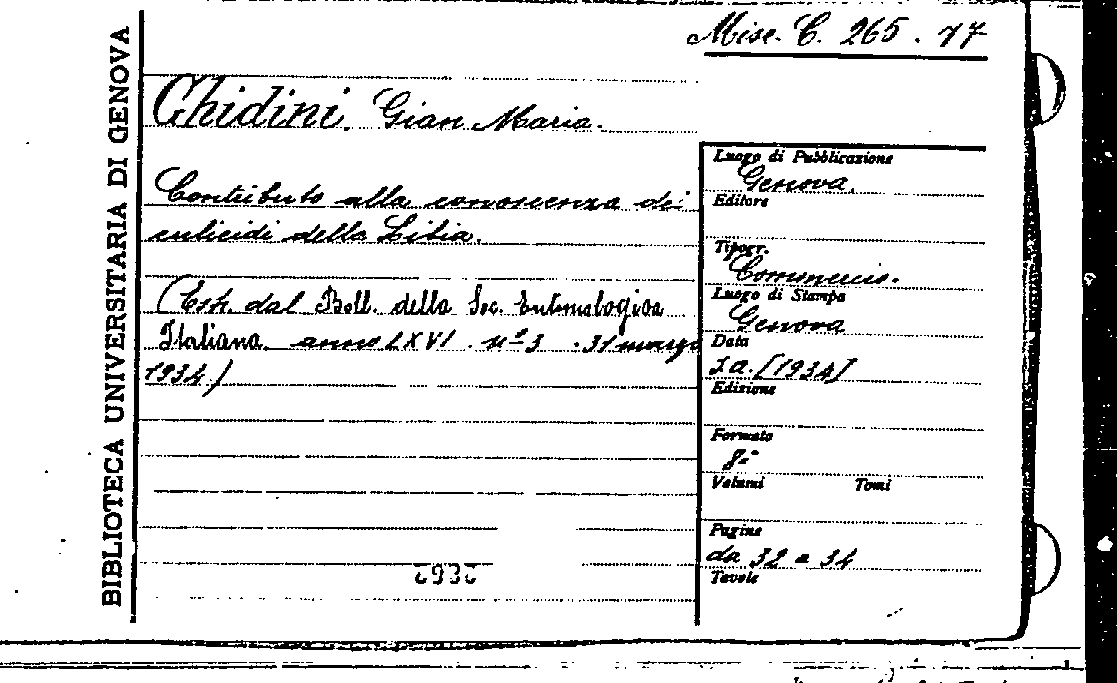 Misc. C. 265. 17
BIBLIOTECA UNIVERSITARIA DI GENOVA
Ghidini, Gian Maria.
Contributo alla conoscenza dei
culicidi della Libia.
(Estr. dal Boll. della Soc. Entomologica
Italiana. anno LXVI. nº 3. 31 marzo
1934)
Luogo di Pubblicazione
Genova.
Editore
Tipogr.
Commercio.
Luogo di Stampa
Genova
Data
s.a. [1934]
Edizione
Formato
8º
Volumi Tomi
Pagine
da 32 a 34
Tavole